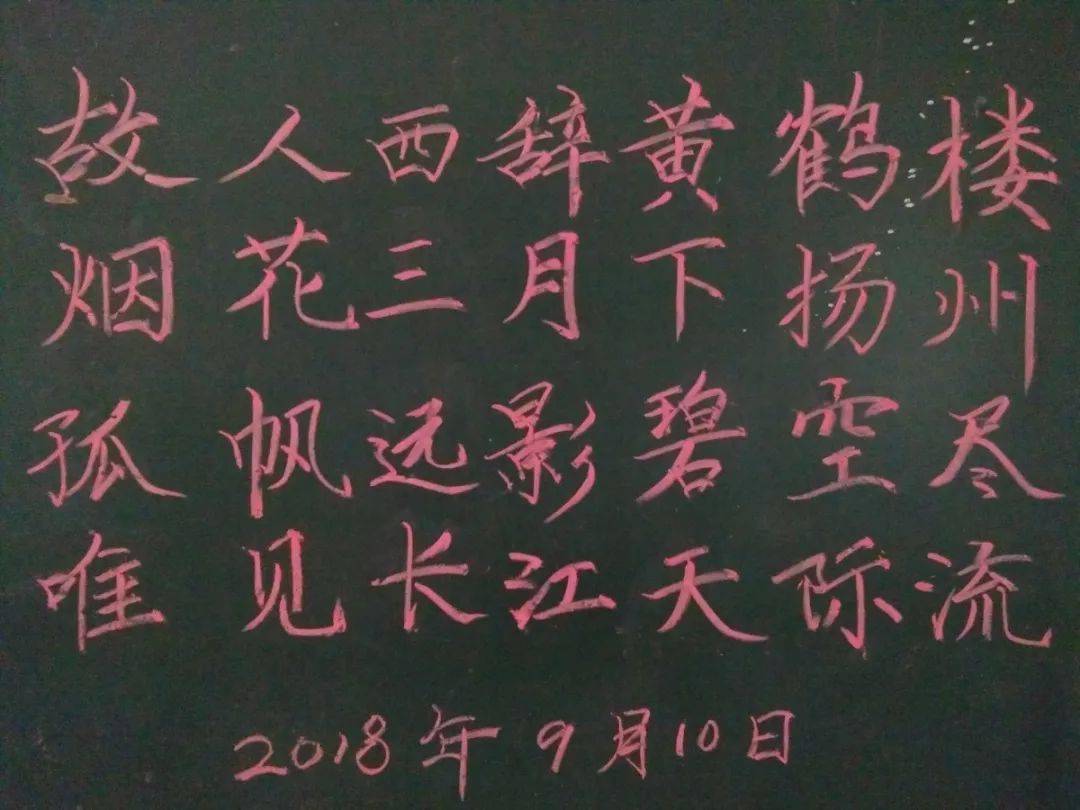 故人西辞黄鹤楼
烟花三月下扬州
孤帆远影碧空尽
唯见长江天际流
2018年9月10日